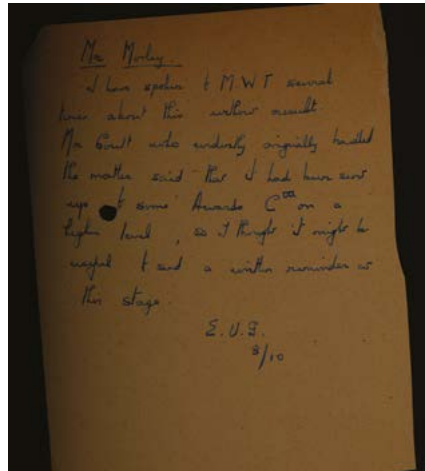 Mr Morley.
I have spoken to M.W.T. several
times about this without result.
Mr Court who evidently originally handled
the matter said that it had been sent
up to some Awards Cttee on a
higher level, so I thought it might be
useful to send a written reminder at
this stage.
E.U.G.
8/10